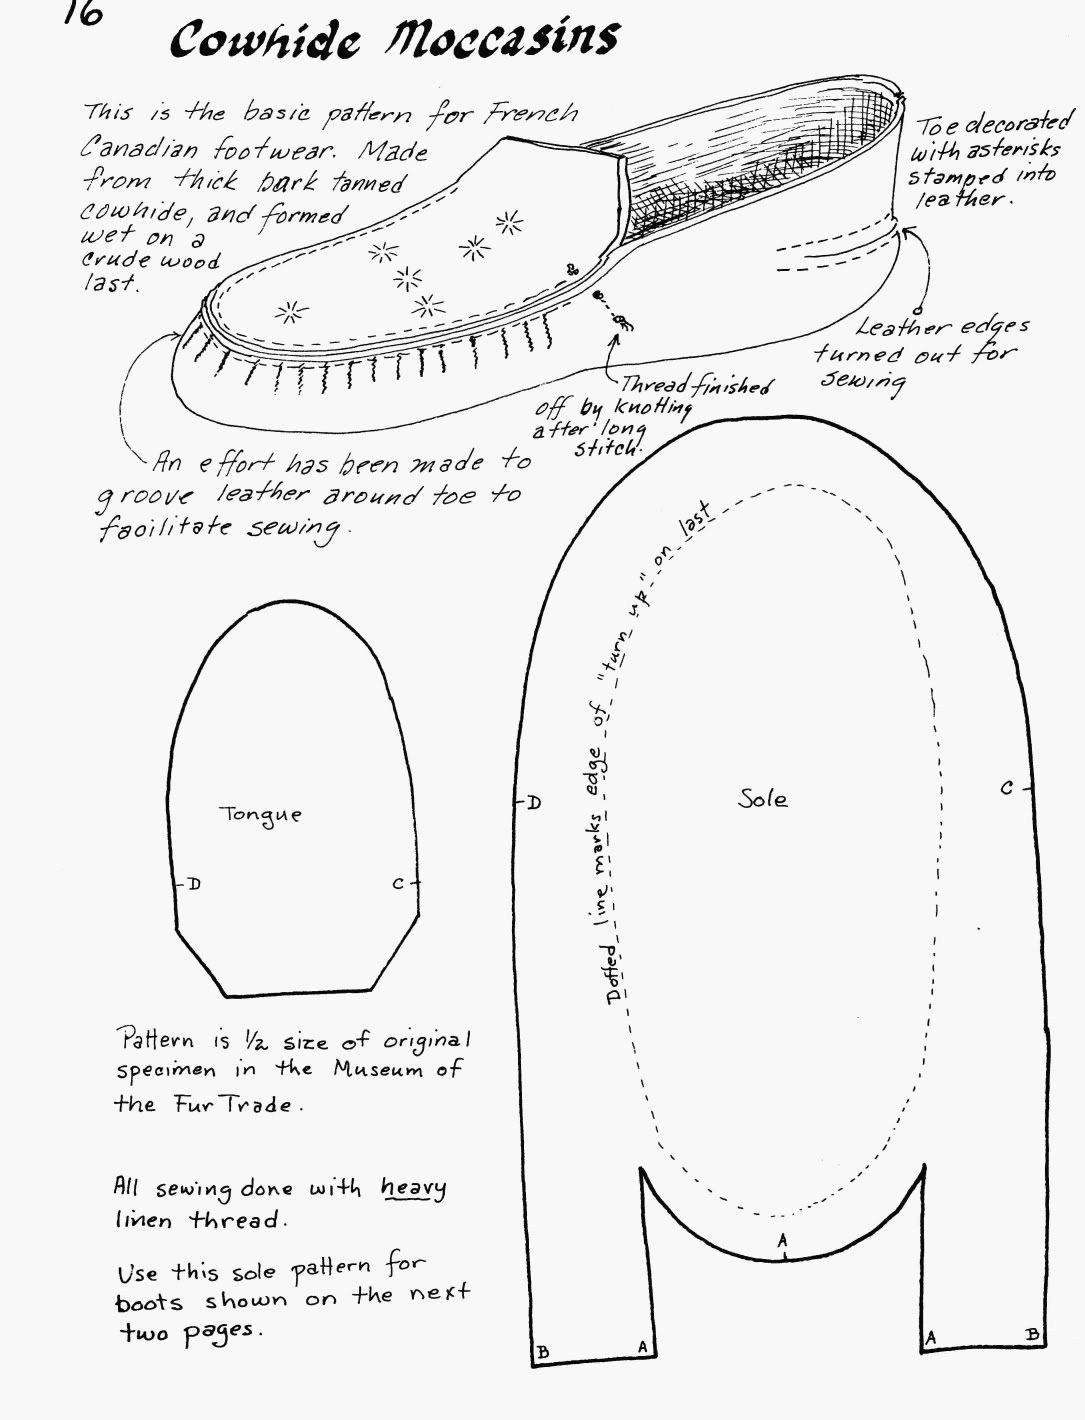 16
Cowhide Moccasins
This is the basic pattern for French
Canadian footwear. Made
from thick bark tanned
cowhide, and formed
wet on a
crude wood
last.
Toe decorated
with asterisks
stamped into
leather.
Leather edges
turned out for
sewing
Thread finished
off by knotting
after long
stitch.
An effort has been made to
groove leather around toe to
facilitate sewing.
Dotted line marks edge of "turn up" on last
Tongue
D
C
Sole
D
C
A
B
A
A
B
Pattern is 1/2 size of original
specimen in the Museum of
the Fur Trade.
All sewing done with heavy
linen thread.
Use this sole pattern for
boots shown on the next
two pages.